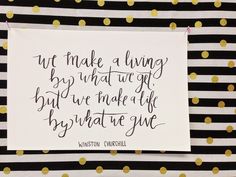 we make a living
by what we get.
but we make a life
by what we give
WINSTON CHURCHILL